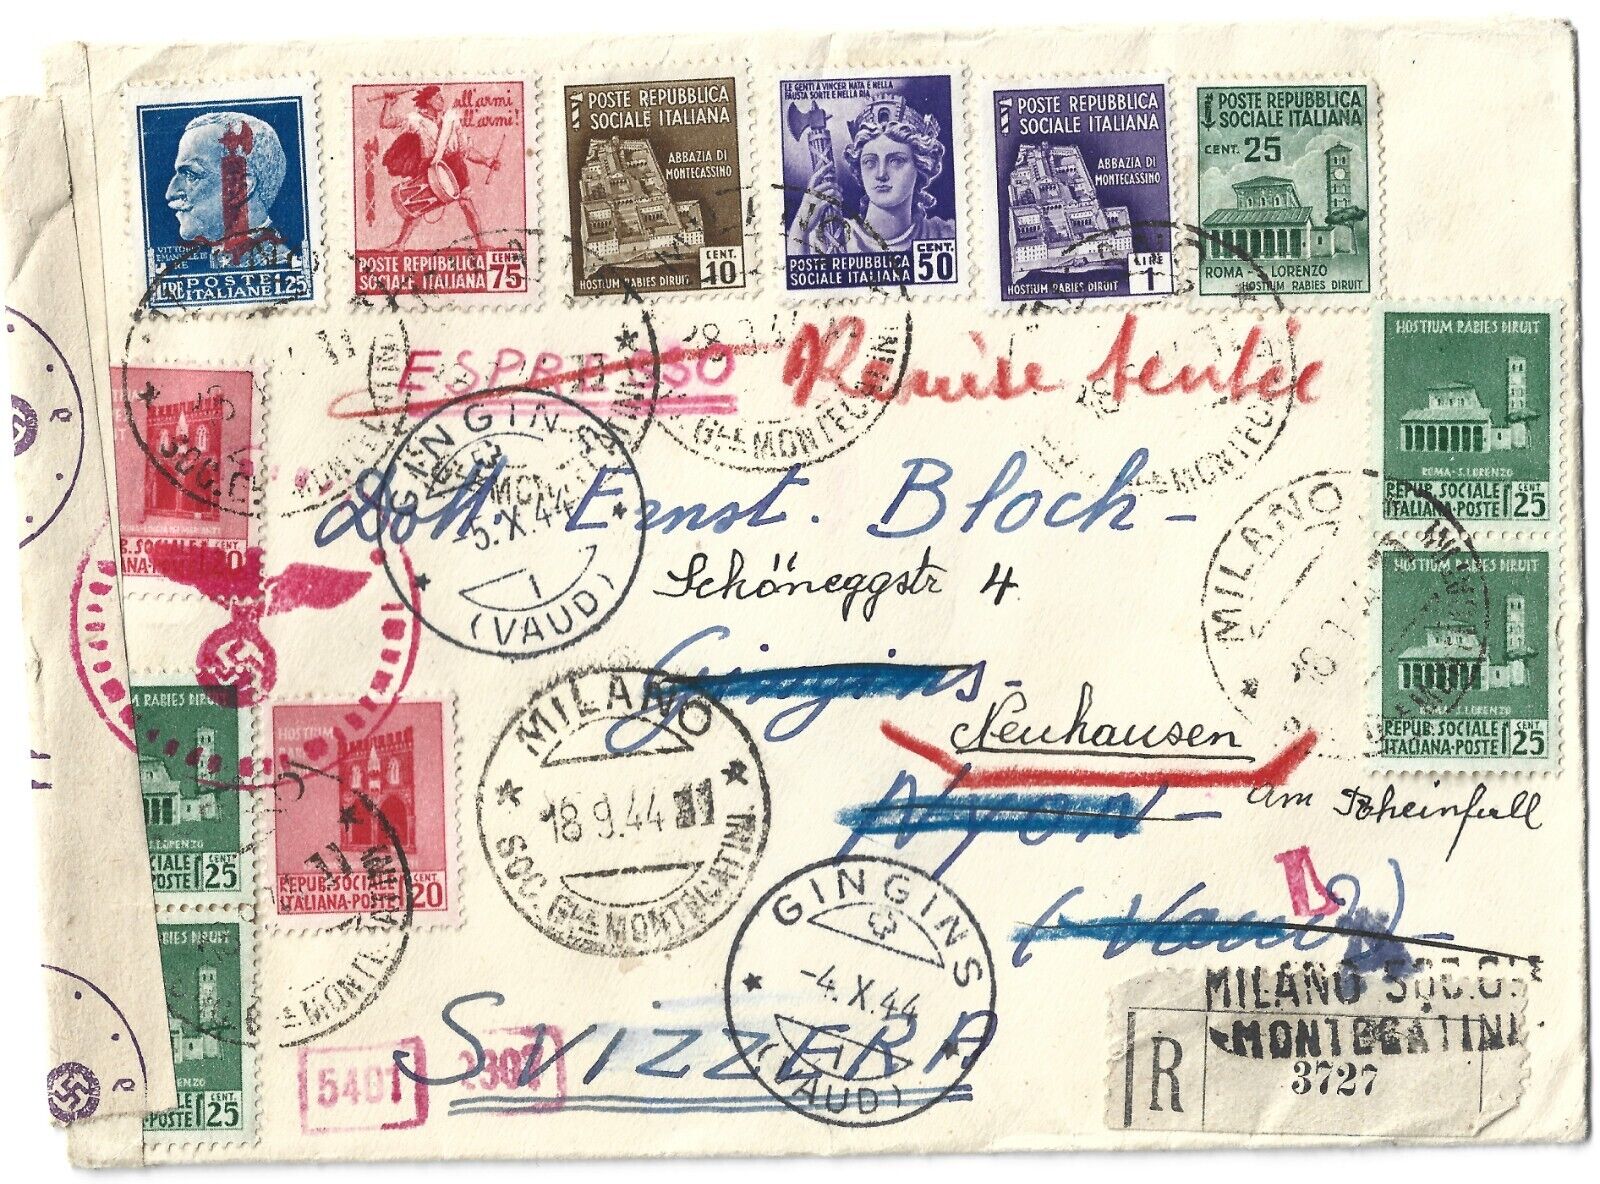 VITTORIO
EMANUELE III
LIRE POSTE 1.25
ITALIANE
all'armi
all'armi!
CENT
POSTE REPUBBLICA
SOCIALE ITALIANA 75
POSTE REPUBBLICA
SOCIALE ITALIANA
ABBAZIA DI
MONTECASSINO
CENT.
10
HOSTIUM RABIES DIRUIT
LE GENTI A VINCER NATA E NELLA
FAUSTA SORTE E NELLA RIA
CENT.
50
POSTE REPUBBLICA
SOCIALE ITALIANA
POSTE REPUBBLICA
SOCIALE ITALIANA
ABBAZIA DI
MONTECASSINO
LIRE
1
HOSTIUM RABIES DIRUIT
POSTE REPUBBLICA
SOCIALE ITALIANA
CENT. 25
ROMA - S. LORENZO
HOSTIUM RABIES DIRUIT
ESPRESSO Remise tentée
HOSTIUM RABIES DIRUIT
ROMA - S. LORENZO
REPUB. SOCIALE CENT
ITALIANA-POSTE 25
HOSTIUM RABIES DIRUIT
ROMA - S. LORENZO
REPUB. SOCIALE CENT
ITALIANA-POSTE 25
GINGINS
5.X.44
1
(VAUD)
Dott. Ernst. Bloch -
Schöneggstr 4
Gingins -
Neuhausen
Nyon - am Rheinfall
(Vaud) -
SVIZZERA
MILANO
SOC. Gle MONTECATINI
B. SOCIALE CENT
ANA-POSTE 20
M RABIES DIRUIT
S. LORENZO
CIALE CENT
-POSTE 25
HOSTIUM
RABIE
REPUB. SOCIA CENT
ITALIANA-POSTE 20
BIES DIRUIT
LE CENT
-POSTE 25
MILANO
18.9.44
SOC. Gle MONTECATINI
GINGINS
-4.X.44
1
(VAUD)
L
5401
2307
MILANO SOC. Gle
MONTECATINI
R 3727